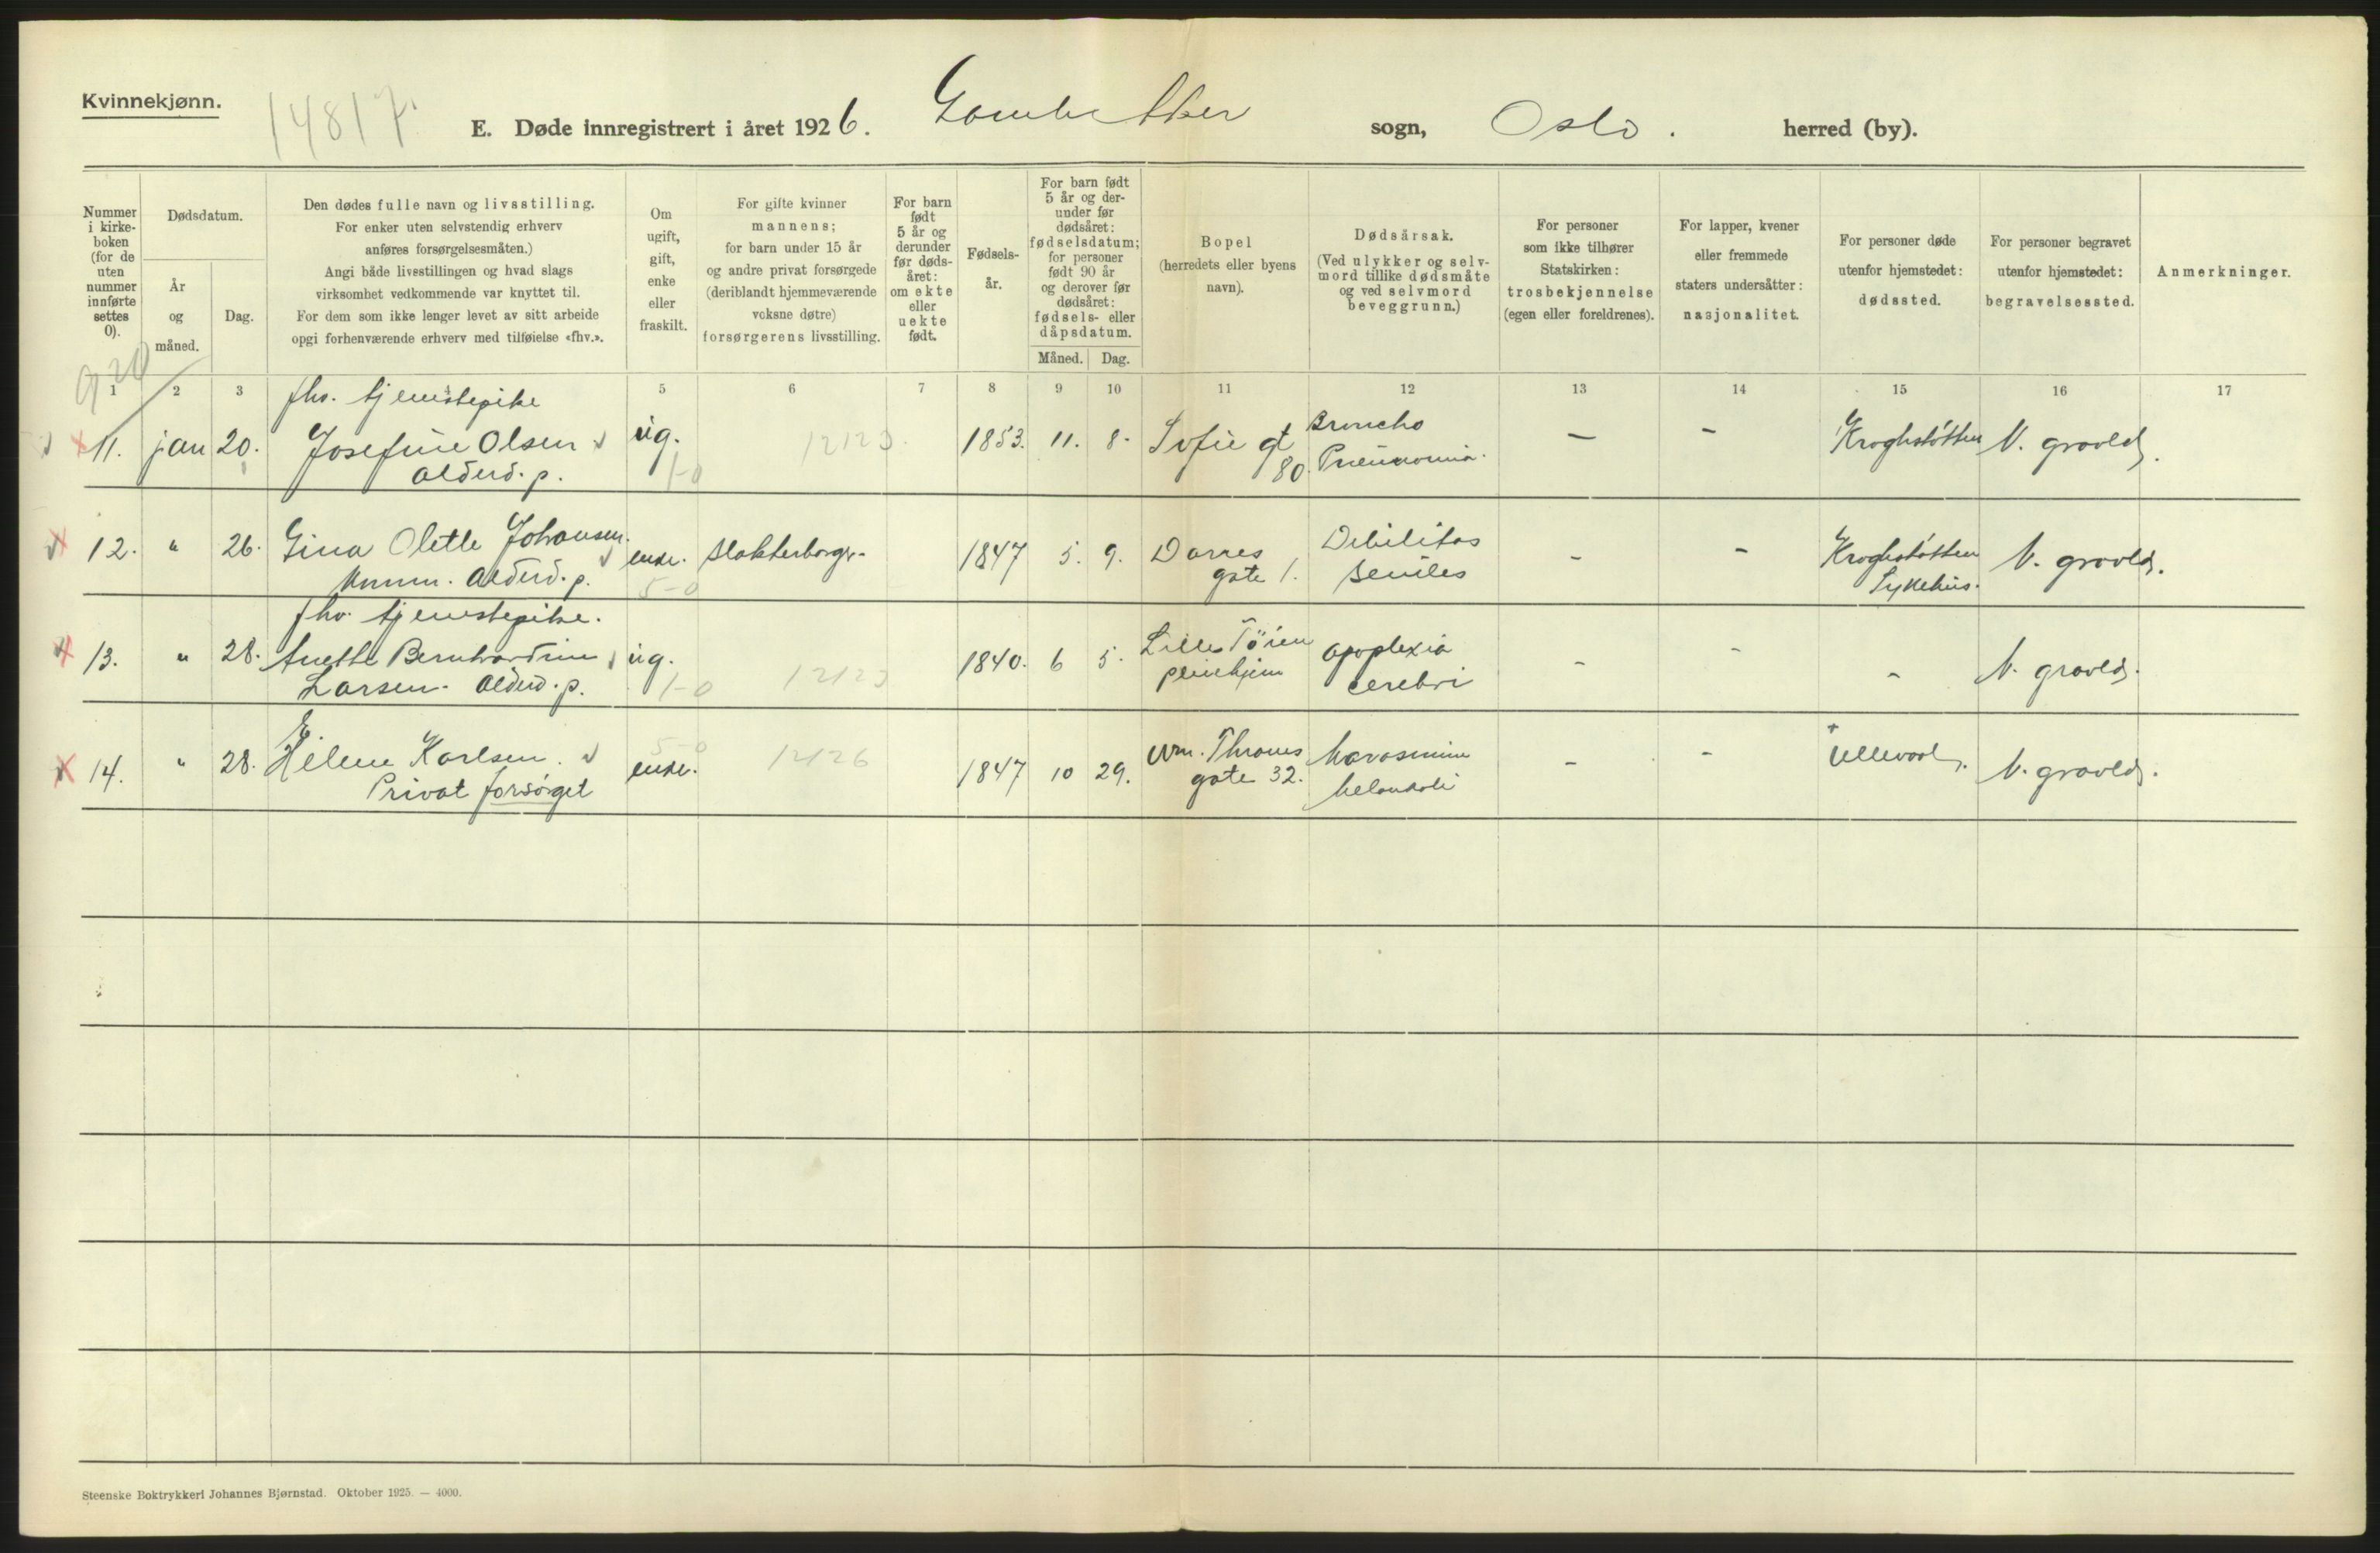 Kvinnekjønn.
14817.
E. Døde innregistrert i året 1926. Gamle Aker sogn, Oslo. herred (by).
Nummer i kirke-boken (for de uten nummer innførte settes 0).
Dødsdatum.
År og måned.
Dag.
Den dødes fulle navn og livsstilling.
For enker uten selvstendig erhverv
anføres forsørgelsesmåten.)
Angi både livsstillingen og hvad slags
virksomhet vedkommende var knyttet til.
For dem som ikke lenger levet av sitt arbeide
opgi forhenværende erhverv med tilføielse «fhv.».
Om ugift, gift, enke eller fraskilt.
For gifte kvinner
mannens;
for barn under 15 år
og andre privat forsørgede
(deriblandt hjemmeværende
voksne døtre)
forsørgerens livsstilling.
For barn født 5 år og derunder før døds-året: om ekte eller uekte født.
Fødsels-år.
For barn født 5 år og der-under før dødsåret: fødselsdatum; for personer født 90 år og derover før dødsåret: fødsels- eller dåpsdatum.
Måned. Dag.
Bopel
(herredets eller byens
navn).
Dødsårsak.
(Ved ulykker og selv-
mord tillike dødsmåte
og ved selvmord
beveggrunn.)
For personer
som ikke tilhører
Statskirken:
trosbekjennelse
(egen eller foreldrenes).
For lapper, kvener
eller fremmede
staters undersåtter:
nasjonalitet.
For personer døde
utenfor hjemstedet:
dødssted.
For personer begravet
utenfor hjemstedet:
begravelsessted.
Anmerkninger.
920
1 2 3 5 6 7 8 9 10 11 12 13 14 15 16 17
fhv. tjenstepike
11. jan 20. Josefine Olsen ug. 1213 1853. 11. 8. Sofie gt 80. Broncho Pneumonia. — – Kroghstøtten V. gravld.
Alderd. p. 1-0
12. " 26. Gina Olette Johansen. enke. Slakterborger. 1847 5. 9. Darres gate 1. Debilitas seniles – – Kroghstøtten Sykehus. V. gravld.
Alderd. p. 5-0
fhv. tjenstepike.
13. " 28. Anette Bernhardine ug. 1213 1840. 6 5. Lille Tøien pleiehjem apoplexia cerebri – – – V. gravld.
Larsen. Alderd. p. 1-0
14. " 28. Helene Karlsen. enke. 5-0 1426 1847 10 29. Wm. Thranes gate 32. Marasmus Melankoli – – Ullevaal. V. gravld.
Privat forsørget
Steenske Boktrykkeri Johannes Bjørnstad. Oktober 1925. — 4000.